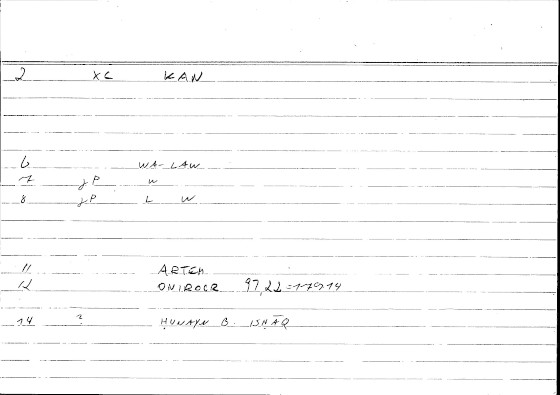 2 XC KAN
6 WA-LAW
7 gP W
8 gP L W
11 ARTEM
12 ONIROCR 97,22=179,14
14 ? ḤUNAYN B. ISḤĀQ